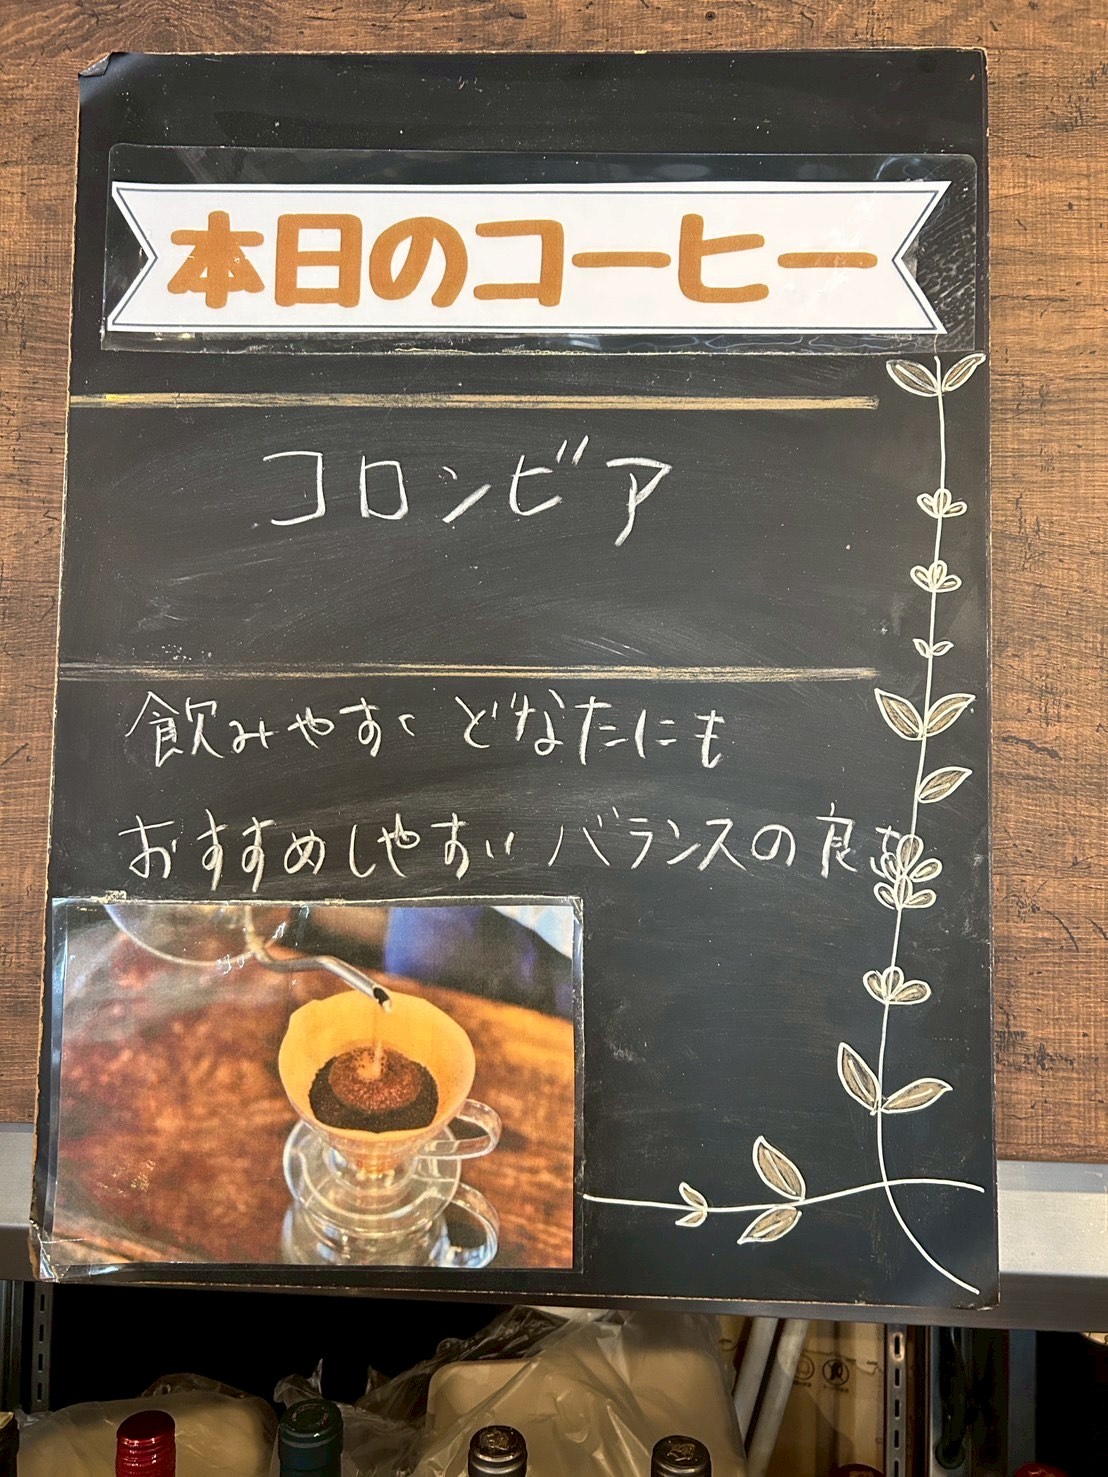 本日のコーヒー
コロンビア
飲みやすく どなたにも
おすすめしやすい バランスの良さ